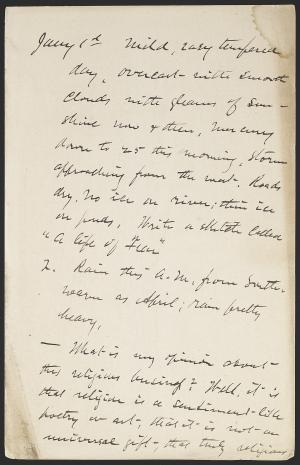 Jany 1st Mild, easy tempered
day, overcast with smooth
clouds with gleams of sun-
shine now & then, Mercury
down to 25 this morning, storm
approaching from the west. Roads
dry. No ice on river; thin ice
on ponds. Write a sketch called
"A life of Fear"
2. Rain this A.M. from South-
warm as April; rain pretty
heavy,
— What is my opinion about
this religious business? Well, it is
that religion is a sentiment like
poetry or art, that it is not an
universal gift - that truly religious